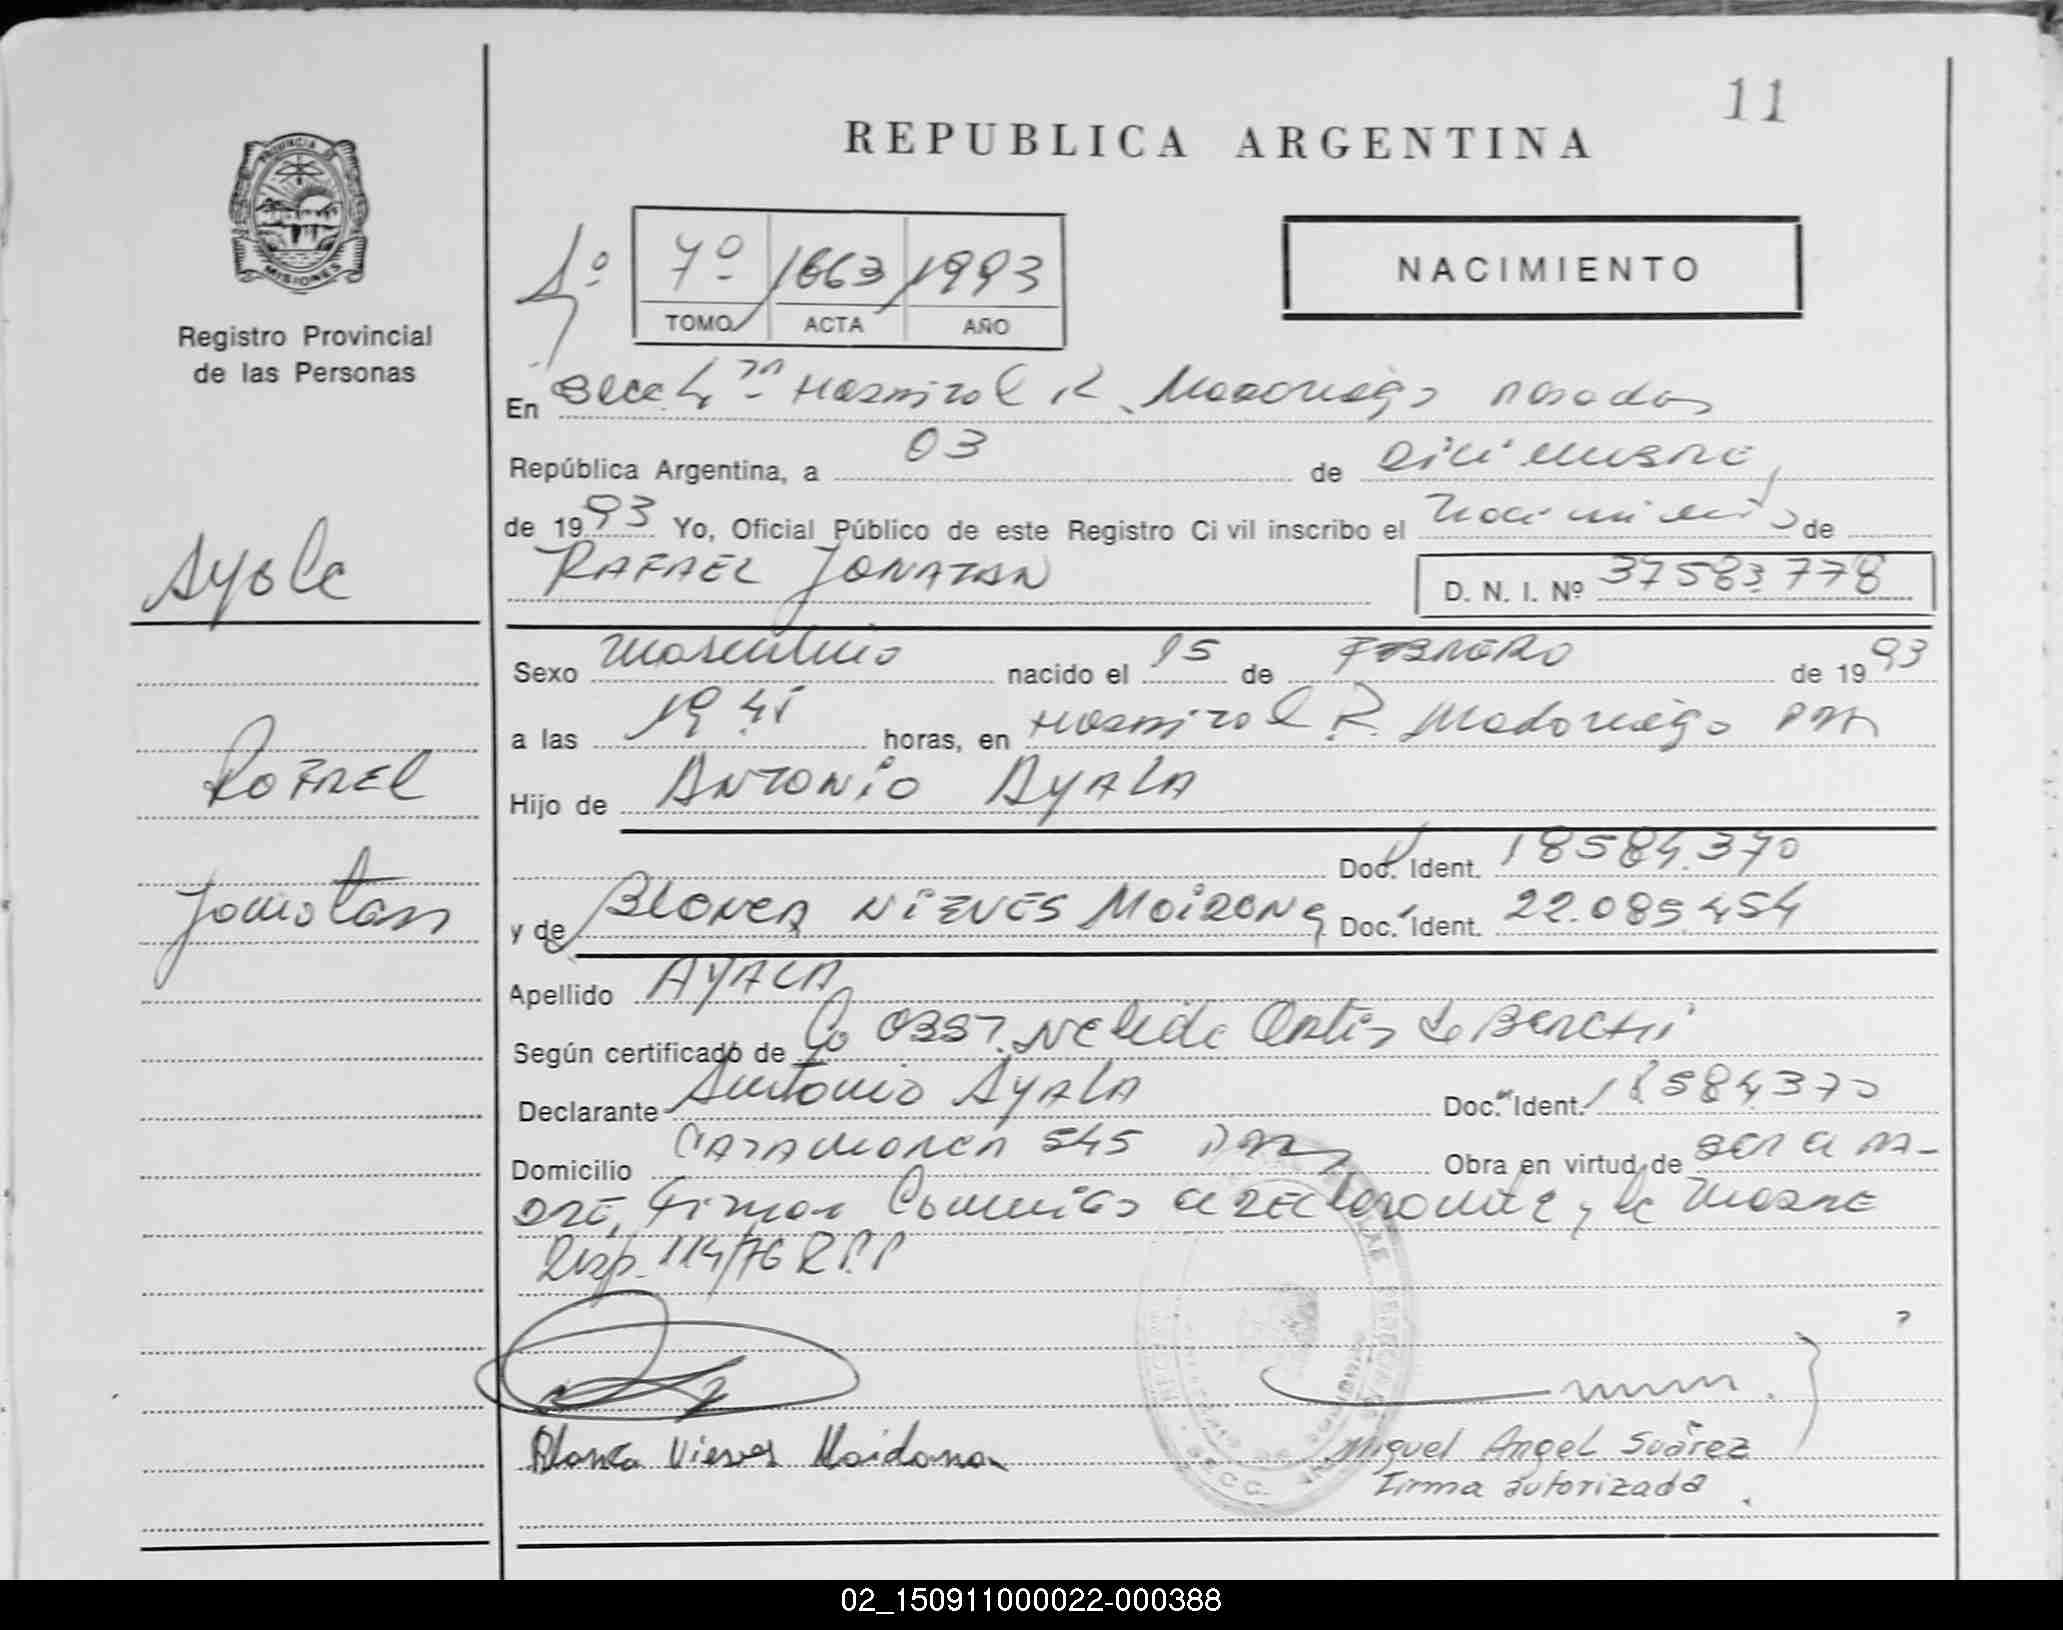 11
REPUBLICA ARGENTINA
PROVINCIA DE
MISIONES
Registro Provincial
de las Personas
1º 7º 1663 1993
TOMO ACTA AÑO
NACIMIENTO
En Secc 4ª Hospital R. Madariaga Posadas
República Argentina, a 03 de Diciembre,
de 1993 Yo, Oficial Público de este Registro Civil inscribo el Nacimiento de
RAFAEL JONATAN D. N. I. Nº 37583778
Ayala
Sexo Masculino nacido el 15 de FEBRERO de 1993
a las 19,45 horas, en Hospital R. Madariaga
Rafael
Hijo de ANTONIO AYALA
Doc. Ident. 18584.370
Jonatan
y de BLANCA NIEVES MAIDANA Doc. Ident. 22.085.454
Apellido AYALA
Según certificado de OBST. Nelida Ortiz de BERCHI
Declarante Antonio AYALA Doc. Ident. 18584.370
Domicilio CATAMARCA 545 Obra en virtud de ser el PA-
DRE, Firman Conmigo el DEClarante y la MADRE
Disp. 114/76 R.P.P
Blanca Nieves Maidana
Miguel Angel Suárez
Firma autorizada
02_150911000022-000388